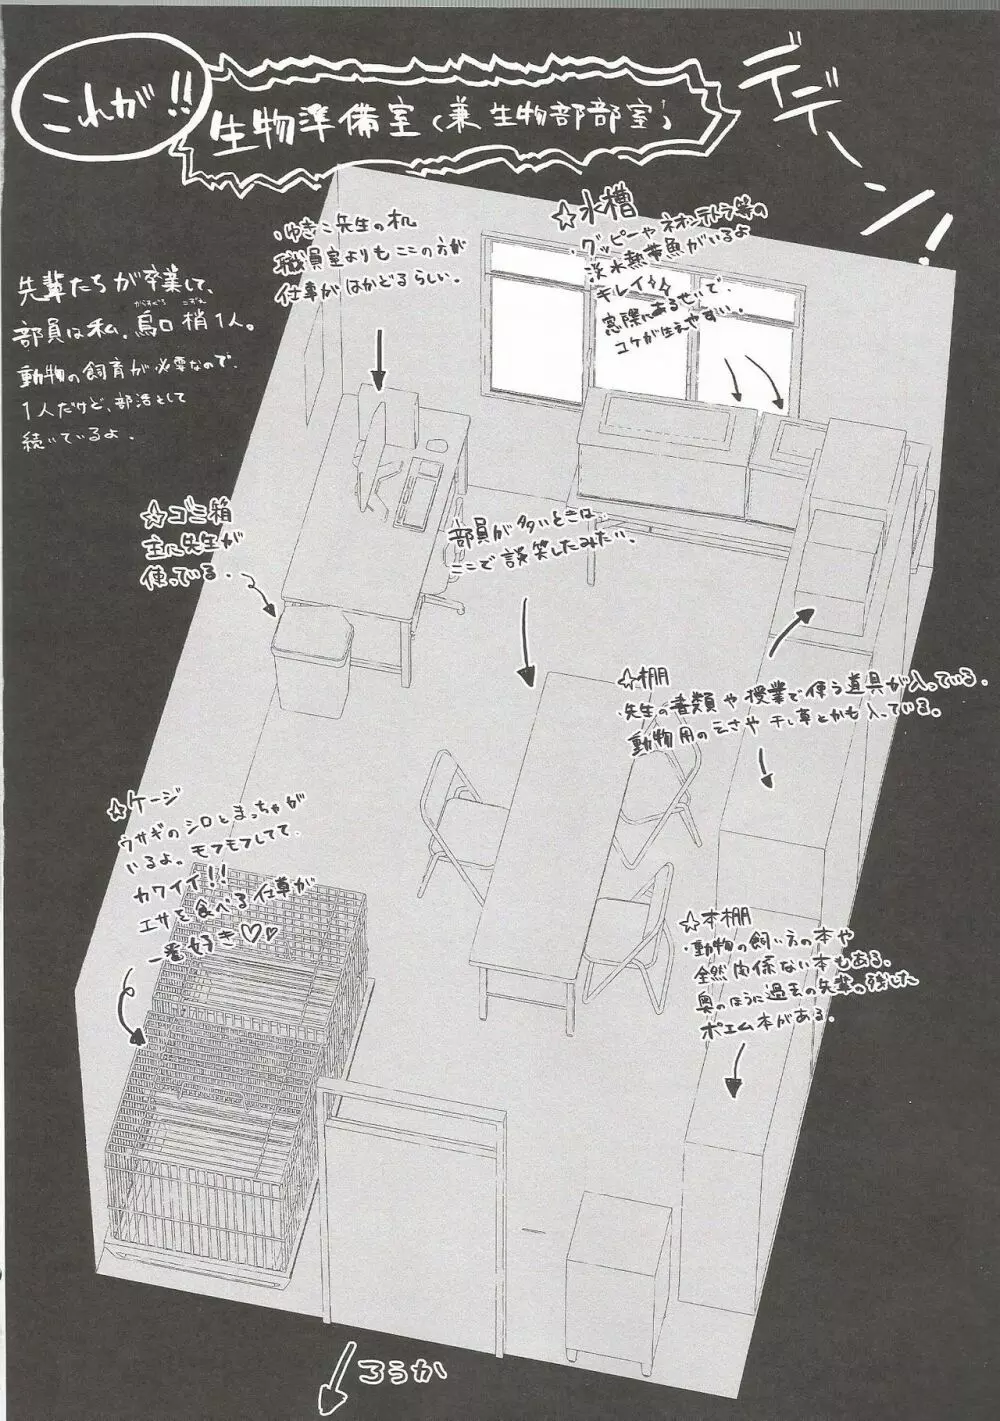 これが!!
生物準備室(兼 生物部部室)
デデーン!
先輩たちが卒業して、
部員は私、烏口 梢1人。
からすぐち こずえ
動物の飼育が必要なので、
1人だけど、部活として
続いているよ.
ゆきこ先生の机
職員室よりもここの方が
仕事がはかどるらしい.
☆水槽
グッピーやネオンテトラ等の
淡水熱帯魚がいるよ
キレイ☆☆
窓際にあるせいで、
コケが生えやすい..
☆ゴミ箱
主に先生が
使っている.
部員が多いときは、
ここで談笑したみたい.
☆棚
先生の書類や授業で使う道具が入っている.
動物用のえさや干し草とかも入っている.
☆ケージ
ウサギのシロとまっちゃが
いるよ. モフモフしてて
カワイイ!!
エサを食べる仕草が
一番好き♡♥
☆本棚
動物の飼い方の本や
全然関係ない本もある.
奥のほうに過去の先輩の残した
ポエム本がある.
ろうか